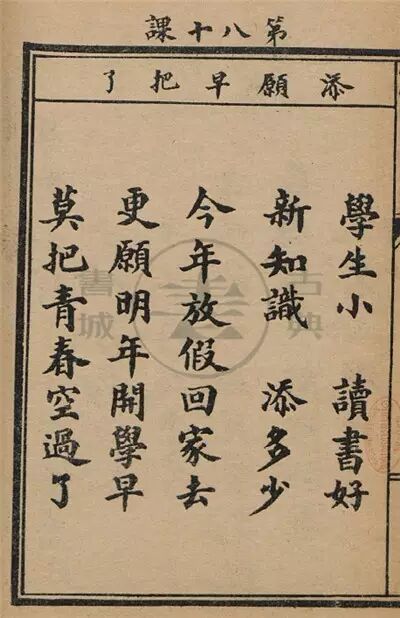 第八十課
添願早把了
學生小 讀書好
新知識 添多少
今年放假回家去
更願明年開學早
莫把青春空過了
古典書城